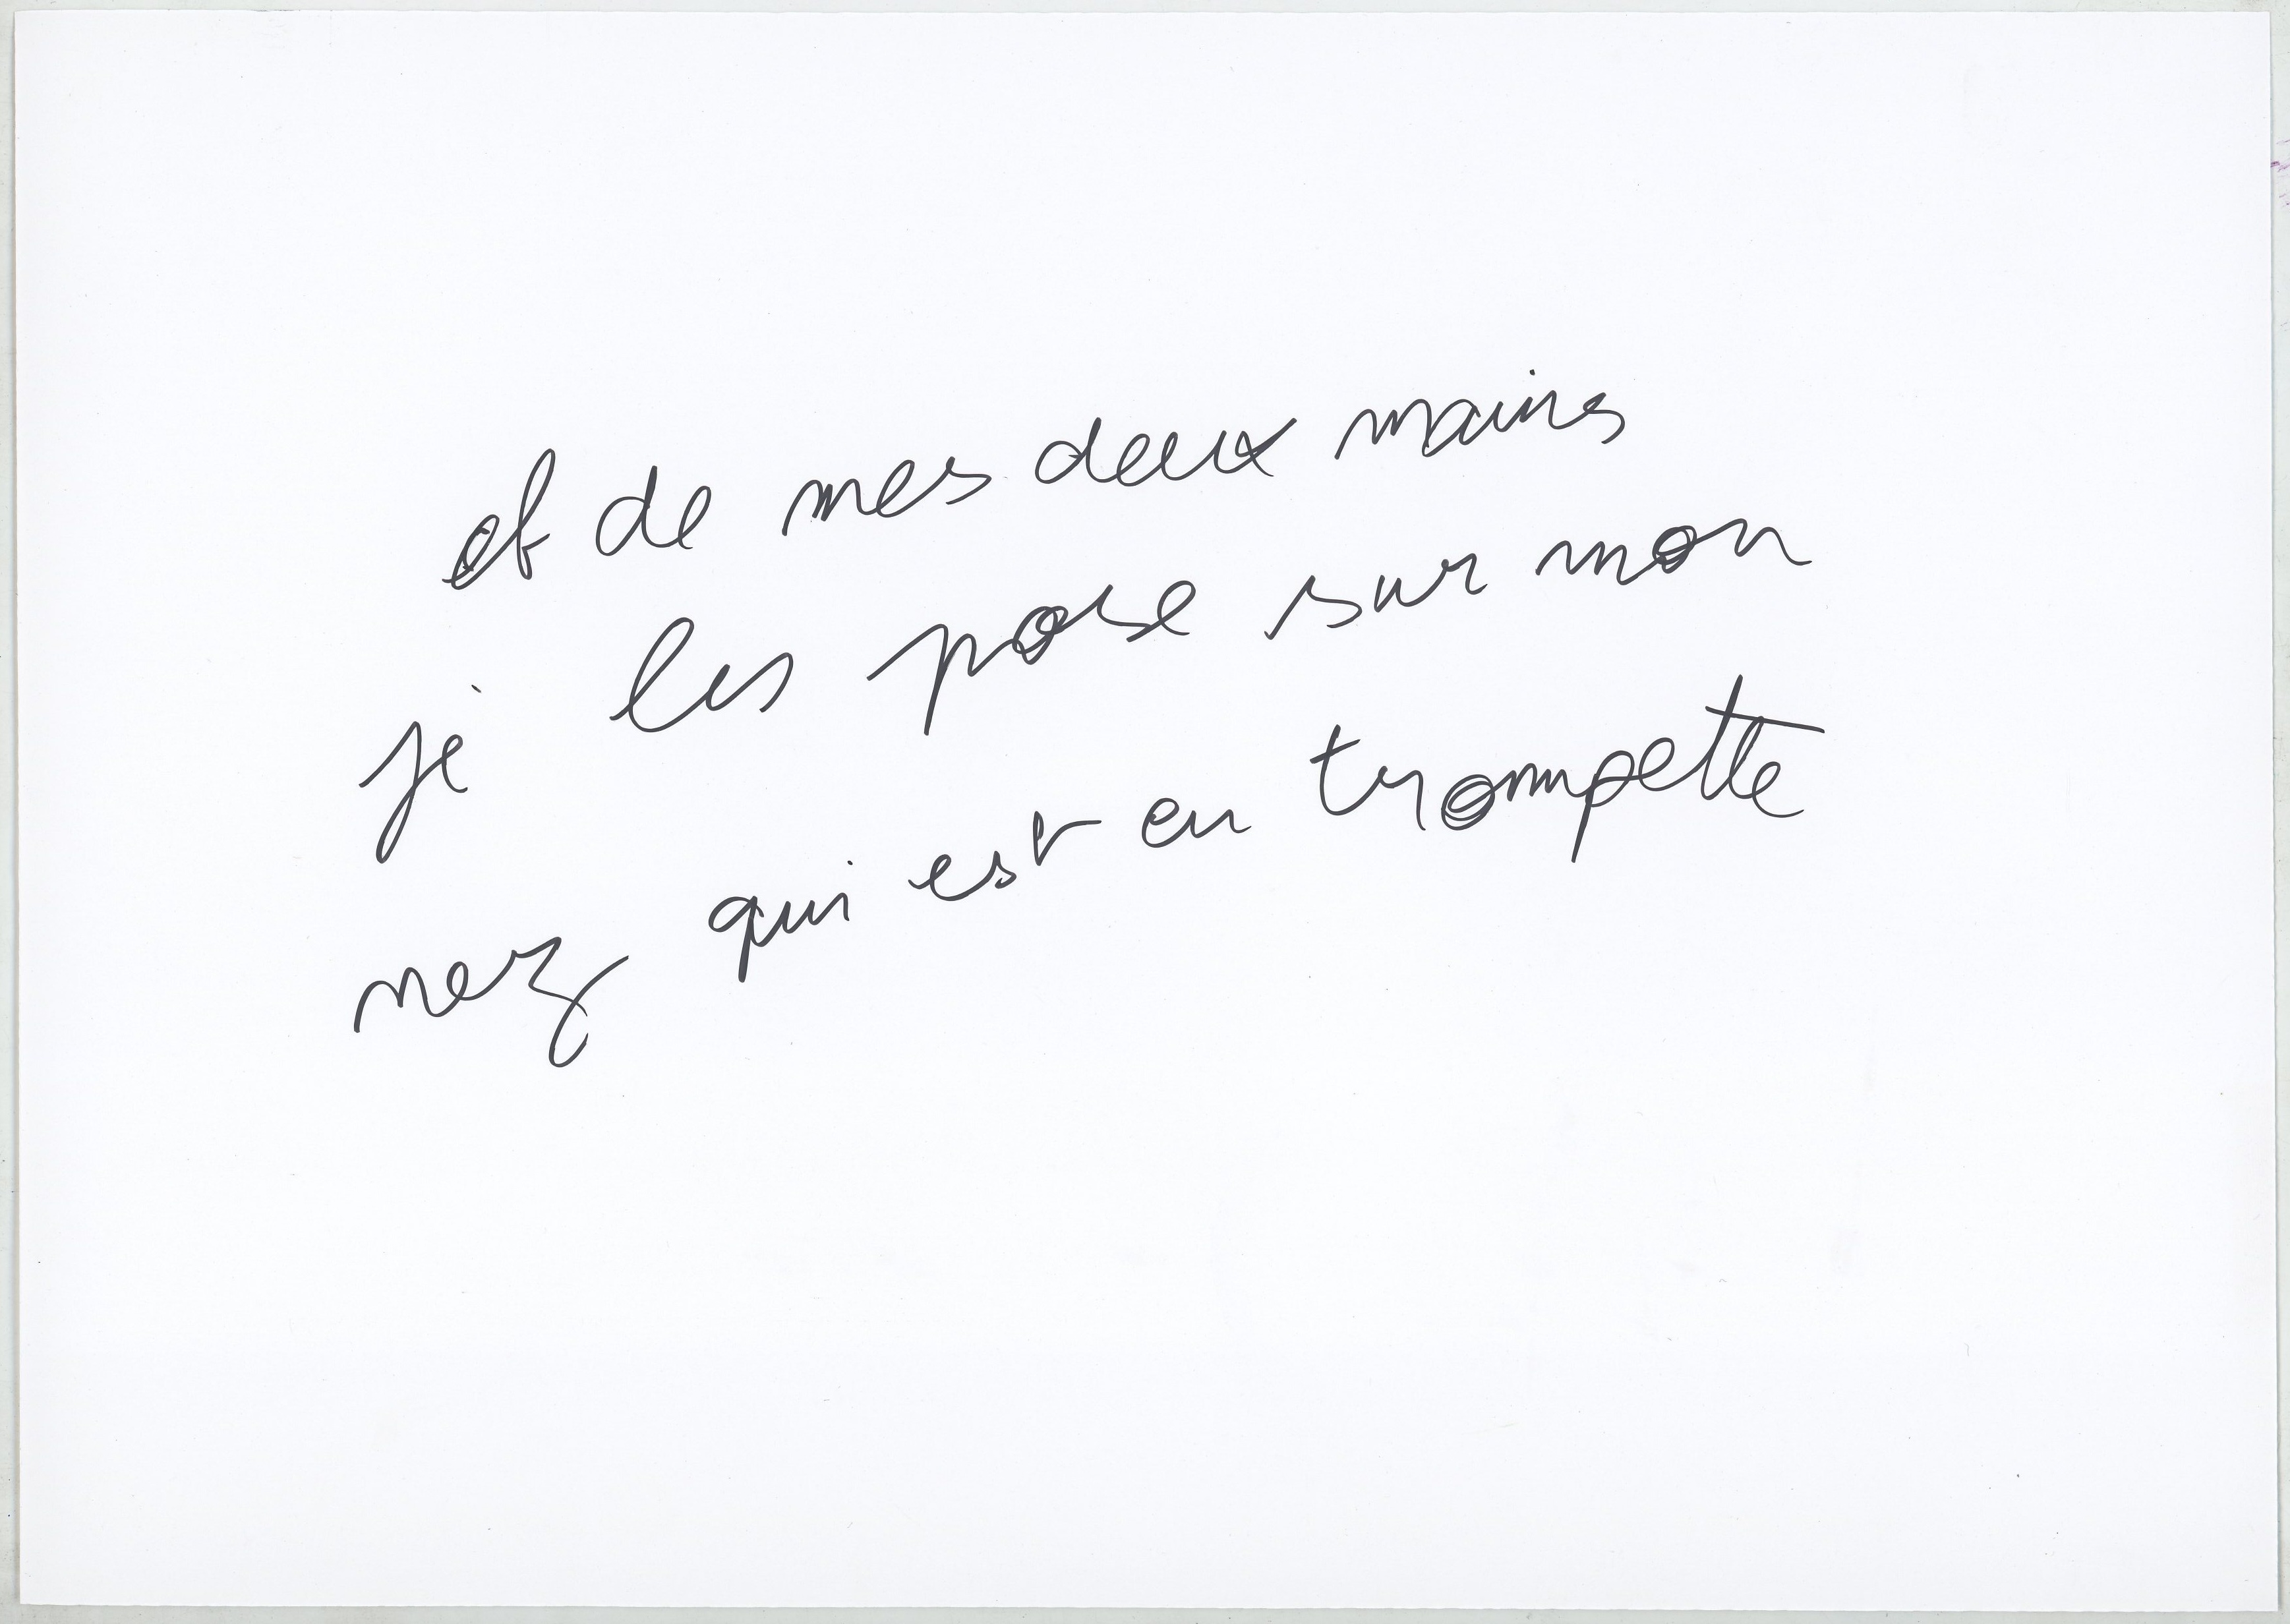 et de mes deux mains
je les pose sur mon
nez qui est en trompette